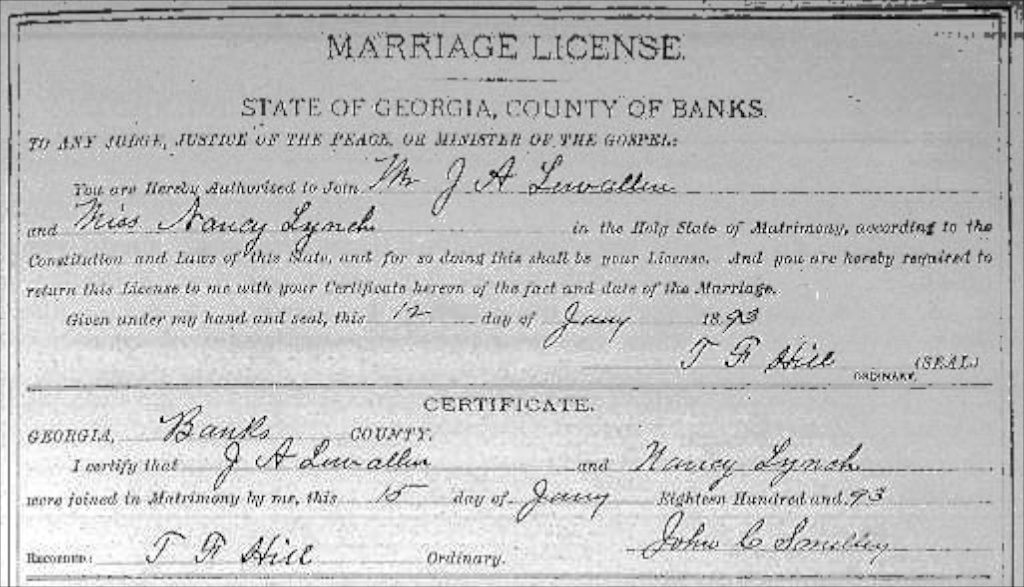 MARRIAGE LICENSE.
STATE OF GEORGIA, COUNTY OF BANKS.
TO ANY JUDGE, JUSTICE OF THE PEACE, OR MINISTER OF THE GOSPEL:
You are Hereby Authorized to Join Mr J A Lewallen
and Miss Nancy Lynch in the Holy State of Matrimony, according to the
Constitution and Laws of this State, and for so doing this shall be your License. And you are hereby required to
return this License to me with your Certificate hereon of the fact and date of the Marriage.
Given under my hand and seal, this 12 day of Jany 1893
T F Hill (SEAL)
ORDINARY.
CERTIFICATE.
GEORGIA, Banks COUNTY.
I certify that J A Lewallen and Nancy Lynch
were joined in Matrimony by me, this 15 day of Jany Eighteen Hundred and 93
John C
RECORDED: T F Hill Ordinary.